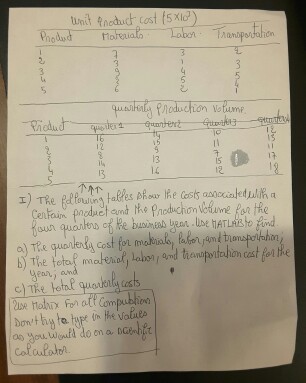 Unit Product cost ($x10³)
Product Materials Labor Transportation
1 7 3 2
2 3 1 3
3 9 4 5
4 2 5 4
5 6 2 1
quarterly Production volume
Product quarter1 quarter2 quarter3 quarter4
1 16 14 10 12
2 12 15 11 13
3 8 9 7 11
4 14 13 15 17
5 13 16 12 18
I) The following tables show the costs associated with a
Certain product and the Production Volume for the
four quarters of the business year. Use MATLAB to find
a) The quarterly cost for materials, labor, and transportation,
b) The total material, labor, and transportation cost for the
year, and
c) The total quarterly costs
Use Matrix For all Computations
Don't try to type in the values
as you would do on a Scientific
Calculator